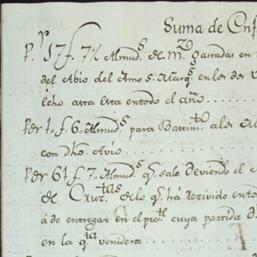 Suma de Enf
P.r 17 f. 7½ Almud.s de M.z gastadas en
del Abio del Amo s.
echo asta esta en todo el año
Per 1. f. 6. Almud.s para Bastim.to a los
con dho. Avio
Per 61 f. 7. Almud.s q.e sale deviendo el
de de lo q.e há Recivido en to
á de entregar en el pre.te cuya partida
en la q.ta venidera